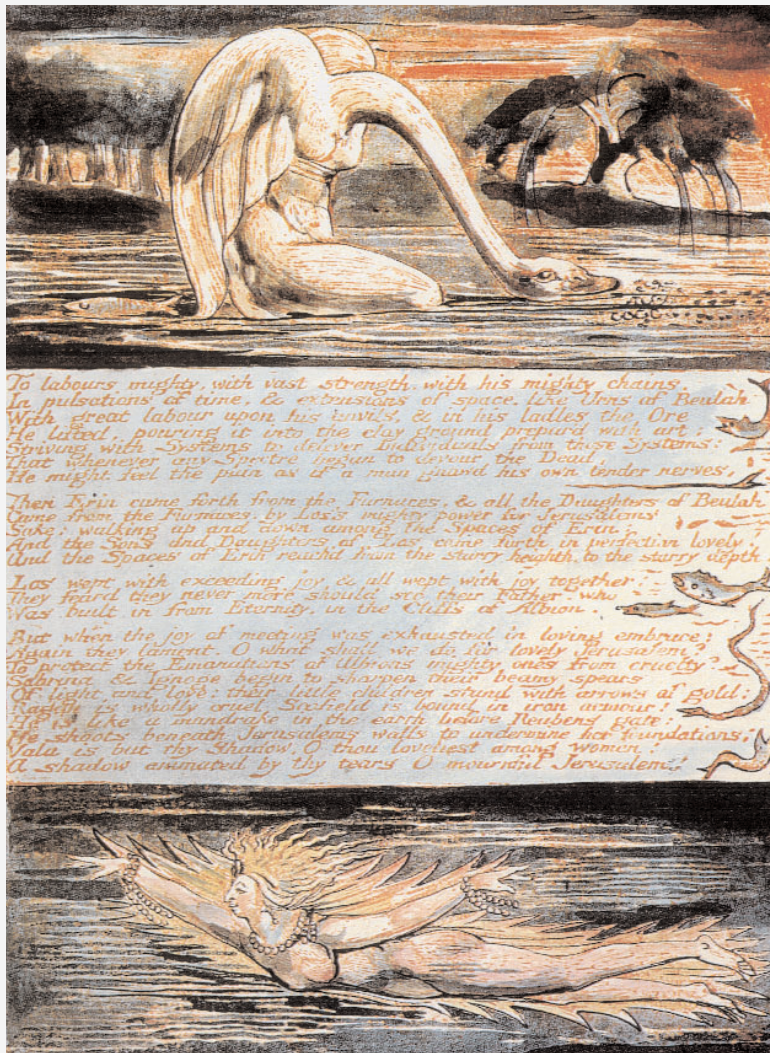 To labours mighty, with vast strength, with his mighty chains,
In pulsations of time, & extensions of space, like Urns of Beulah
With great labour upon his anvils, & in his ladles the Ore
He lifted, pouring it into the clay ground prepar'd with art;
Striving with Systems to deliver Individuals from those Systems;
That whenever any Spectre began to devour the Dead,
He might feel the pain as if a man gnawd his own tender nerves.
Then Erin came forth from the Furnaces, & all the Daughters of Beulah
Came from the Furnaces, by Los's mighty power for Jerusalems
Sake: walking up and down among the Spaces of Erin:
And the Sons and Daughters of Los came forth in perfection lovely!
And the Spaces of Erin reach'd from the starry heighth, to the starry depth.
Los wept with exceeding joy & all wept with joy together!
They feard they never more should see their Father, who
Was built in from Eternity, in the Cliffs of Albion.
But when the joy of meeting was exhausted in loving embrace;
Again they lament. O what shall we do for lovely Jerusalem?
To protect the Emanations of Albions mighty ones from cruelty?
Sabrina & Ignoge begin to sharpen their beamy spears
Of light and love: their little children stand with arrows of gold:
Ragan is wholly cruel Scofield is bound in iron armour!
He is like a mandrake in the earth before Reubens gate:
He shoots beneath Jerusalems walls to undermine her foundations!
Vala is but thy Shadow, O thou loveliest among women!
A shadow animated by thy tears O mournful Jerusalem!